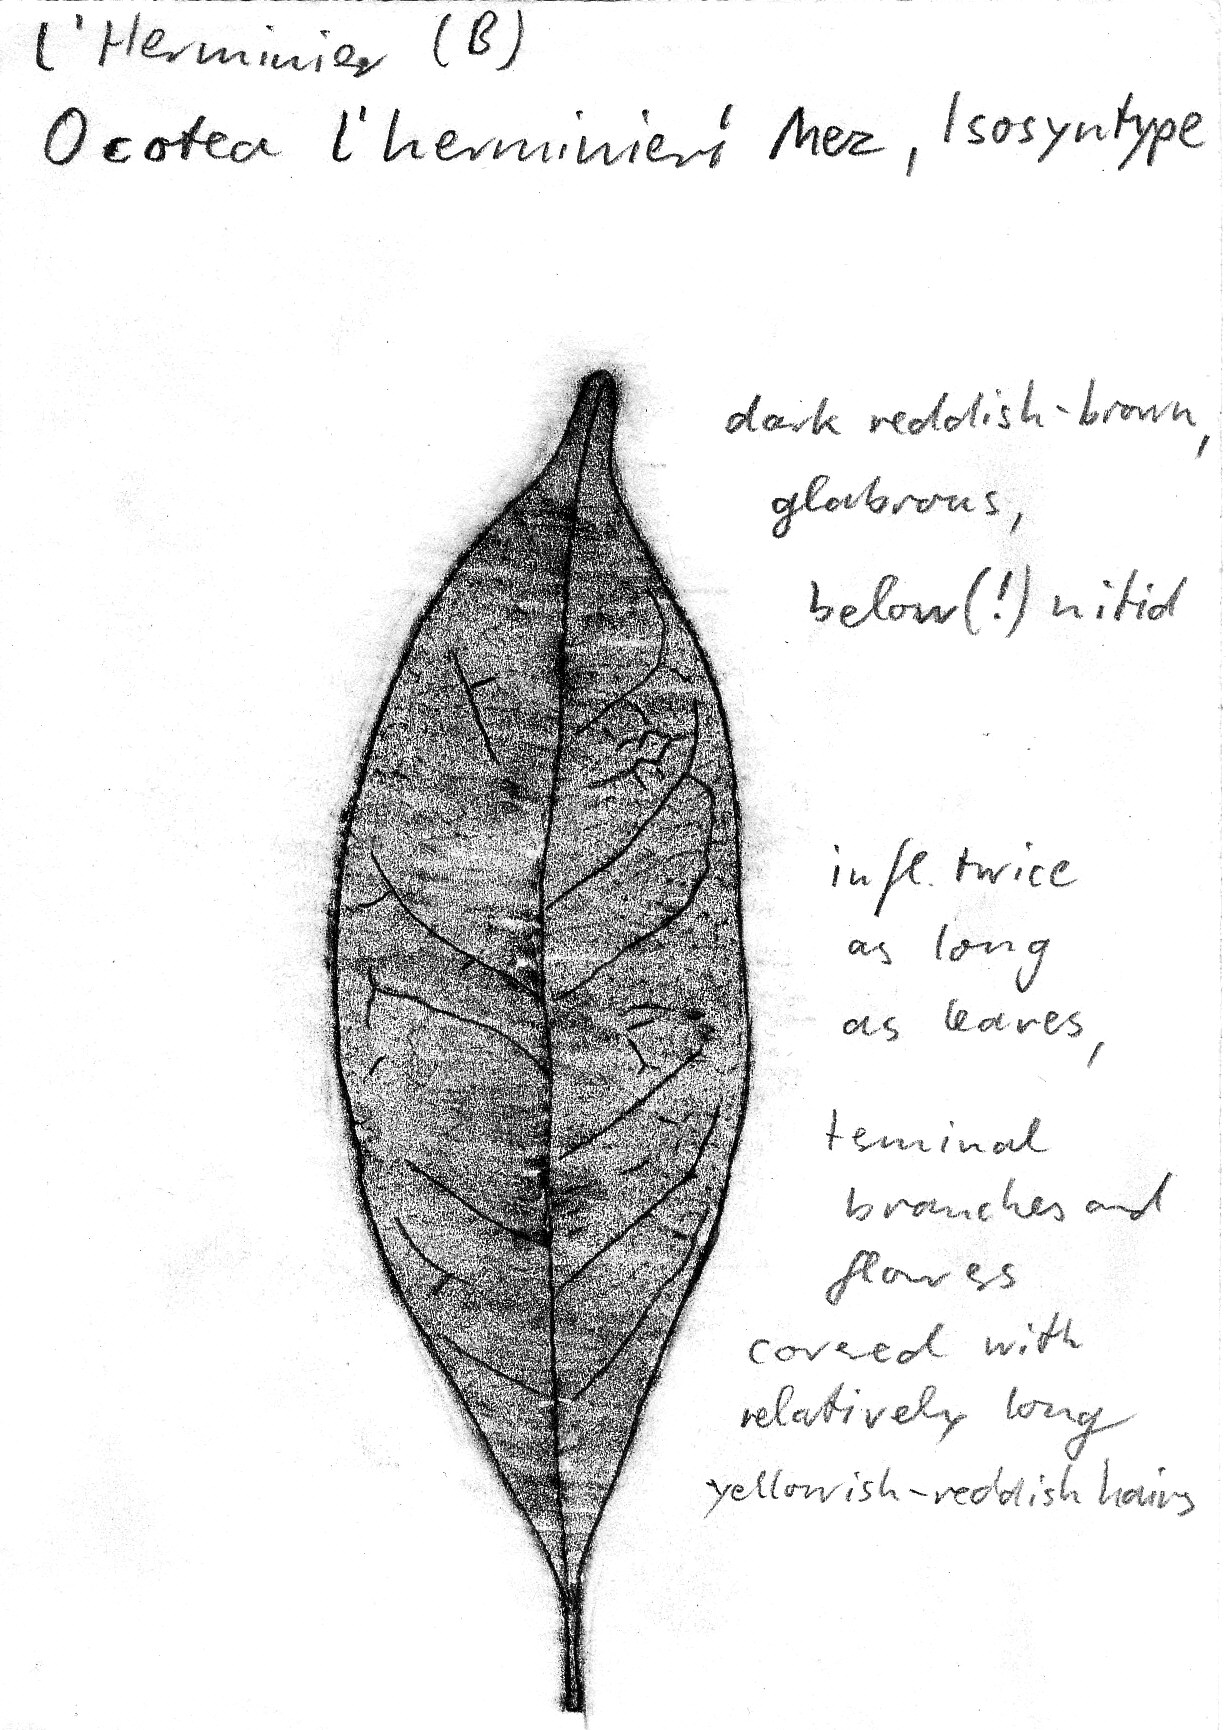 L'Herminier (B)
Ocotea l'herminieri Mez, Isosyntype
dark reddish-brown,
glabrous,
below(!) nitid
infl. twice
as long
as leaves,
teminal
branches and
flowers
covered with
relatively long
yellowish-reddish hairs